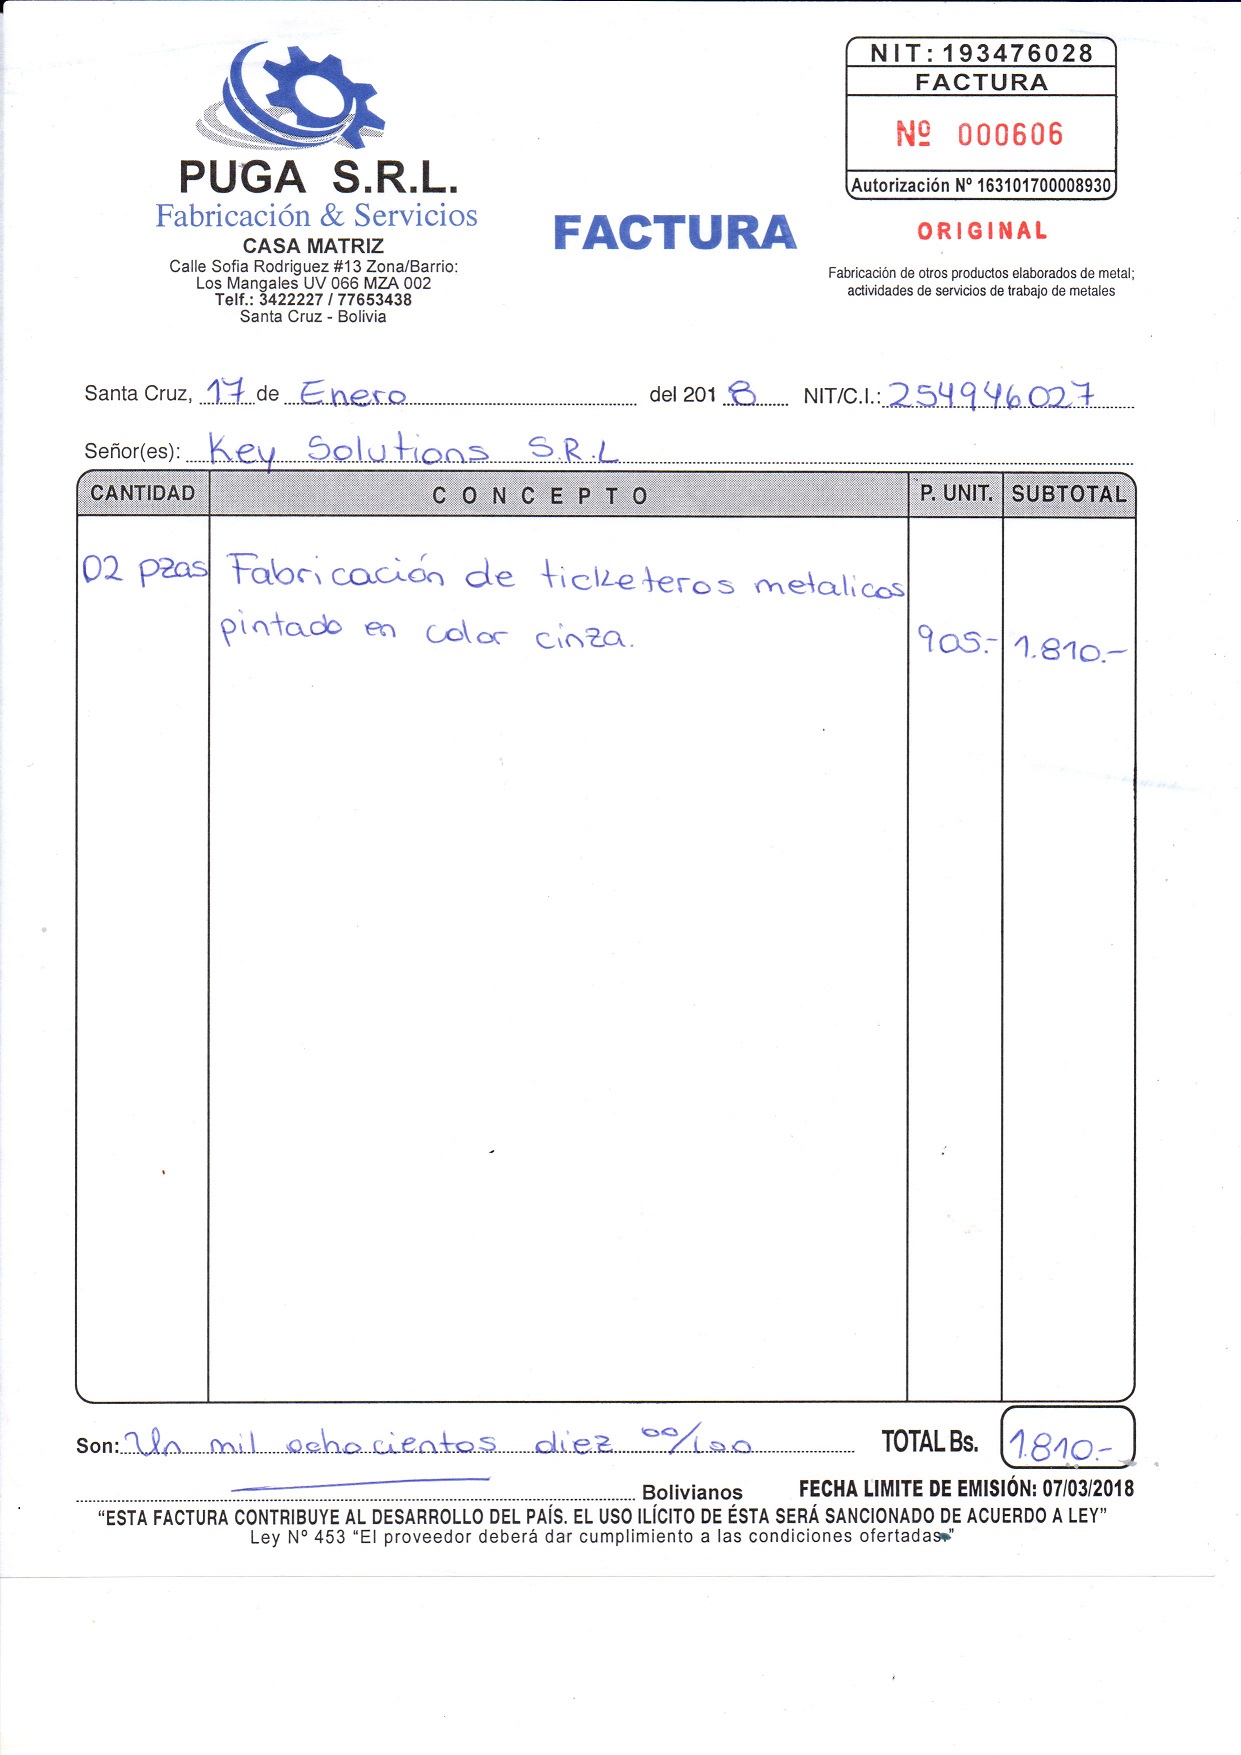 PUGA S.R.L.
Fabricación & Servicios
CASA MATRIZ
Calle Sofia Rodriguez #13 Zona/Barrio:
Los Mangales UV 066 MZA 002
Telf.: 3422227 / 77653438
Santa Cruz - Bolivia
FACTURA
NIT: 193476028
FACTURA
Nº 000606
Autorización Nº 163101700008930
ORIGINAL
Fabricación de otros productos elaborados de metal;
actividades de servicios de trabajo de metales
Santa Cruz, 17 de Enero del 2018 NIT/C.I.: 254946027
Señor(es): Key Solutions S.R.L
CANTIDAD CONCEPTO P. UNIT. SUBTOTAL
02 pzas Fabricación de ticketeros metalicos
pintado en color cinza. 905.- 1.810.-
Son: Un mil ochocientos diez 00/100 TOTAL Bs. 1.810.-
Bolivianos FECHA LIMITE DE EMISIÓN: 07/03/2018
“ESTA FACTURA CONTRIBUYE AL DESARROLLO DEL PAÍS. EL USO ILÍCITO DE ÉSTA SERÁ SANCIONADO DE ACUERDO A LEY”
Ley Nº 453 “El proveedor deberá dar cumplimiento a las condiciones ofertadas.”